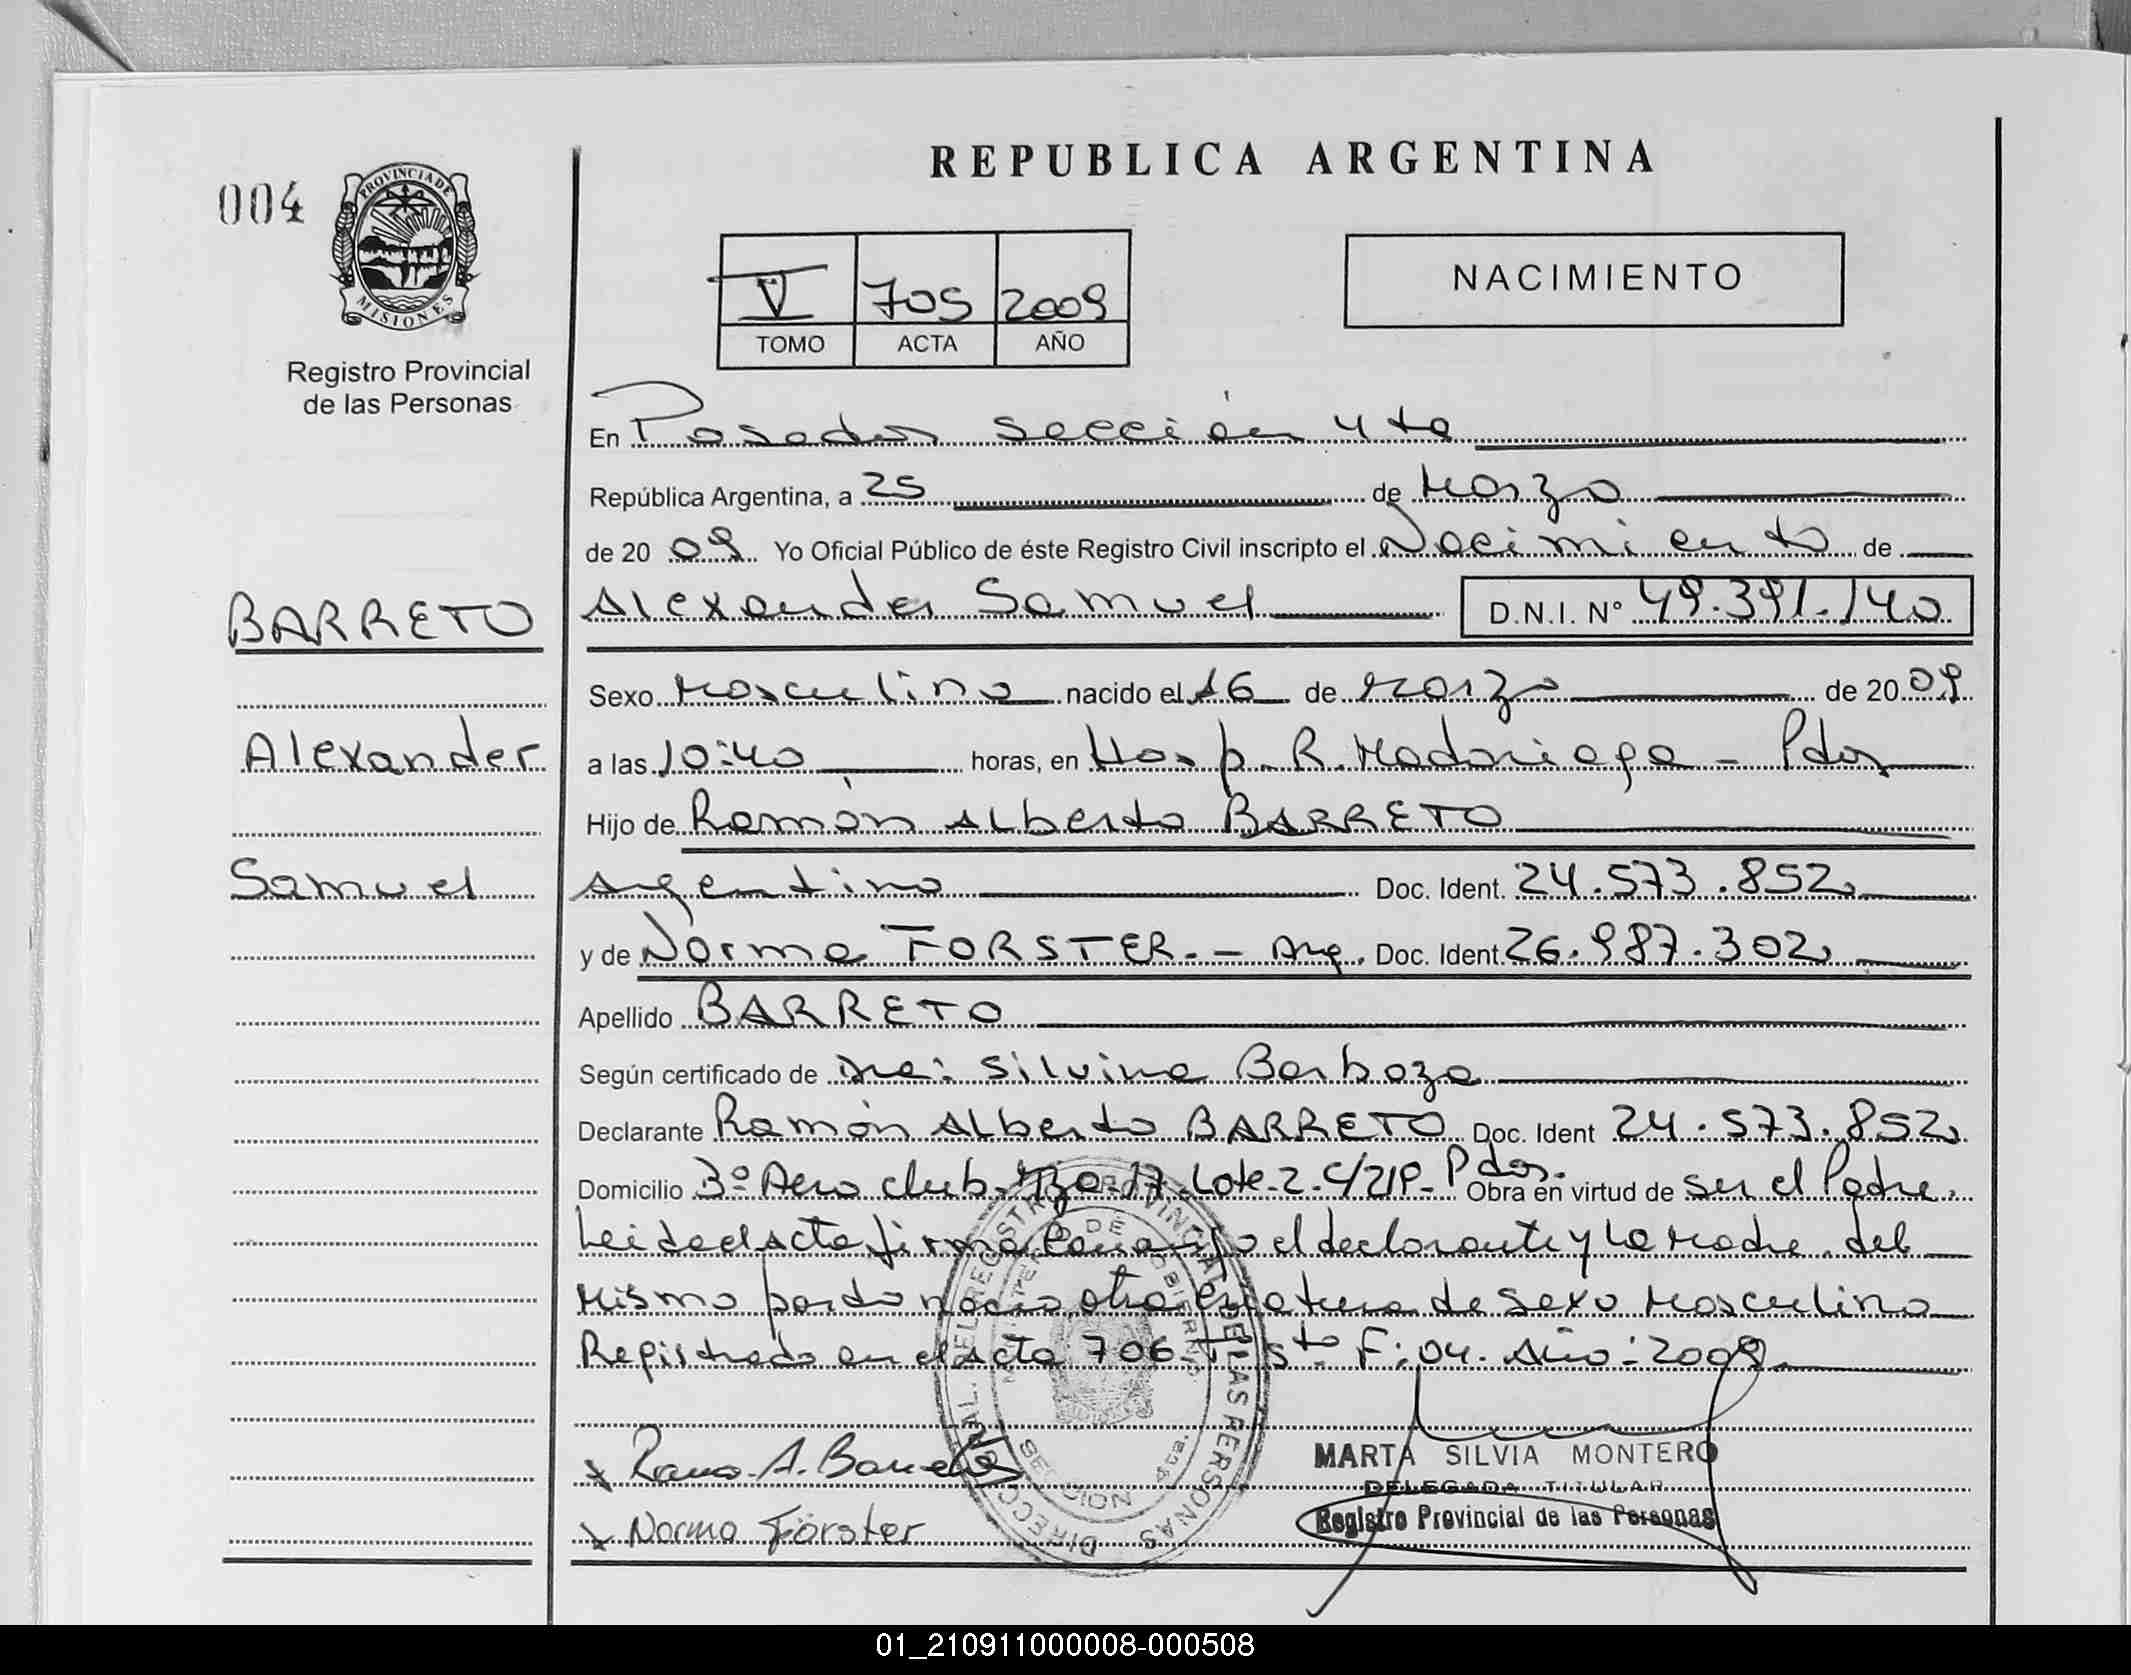 REPUBLICA ARGENTINA
004
PROVINCIA DE
MISIONES
Registro Provincial
de las Personas
V 705 2009
TOMO ACTA AÑO
NACIMIENTO
En Posadas sección 4ta
República Argentina, a 25 de Marzo
de 2009 Yo Oficial Público de éste Registro Civil inscripto el Nacimiento de
BARRETO
Alexander Samuel D.N.I. Nº 49.391.140
Sexo Masculino nacido el 16 de Marzo de 2009
Alexander
a las 10:40 horas, en Hosp. R. Madariaga - Pdas
Hijo de Ramón Alberto BARRETO
Samuel
Argentino Doc. Ident. 24.573.852
y de Norma FORSTER. - Arg. Doc. Ident 26.987.302
Apellido BARRETO
Según certificado de Dra: Silvina Barboza
Declarante Ramón Alberto BARRETO Doc. Ident 24.573.852
Domicilio 3º Aero club. Mza. 17. Lote. 2. C/219. Pdas. Obra en virtud de ser el Padre.
Leida el acta firma conmigo el declarante y la Madre. del
Mismo parto nacio otra criatura de sexo Masculino
Registrado en el acta 706. Tº 5to F: 04. Año: 2009.
DIRECC. GRAL. DEL REGISTRO PROVINCIAL DE LAS PERSONAS
MINISTERIO DE GOBIERNO
SECCION 4ta.
Ramo. A. Barreto
Norma Förster
MARTA SILVIA MONTERO
DELEGADA TITULAR
Registro Provincial de las Personas
01_210911000008-000508